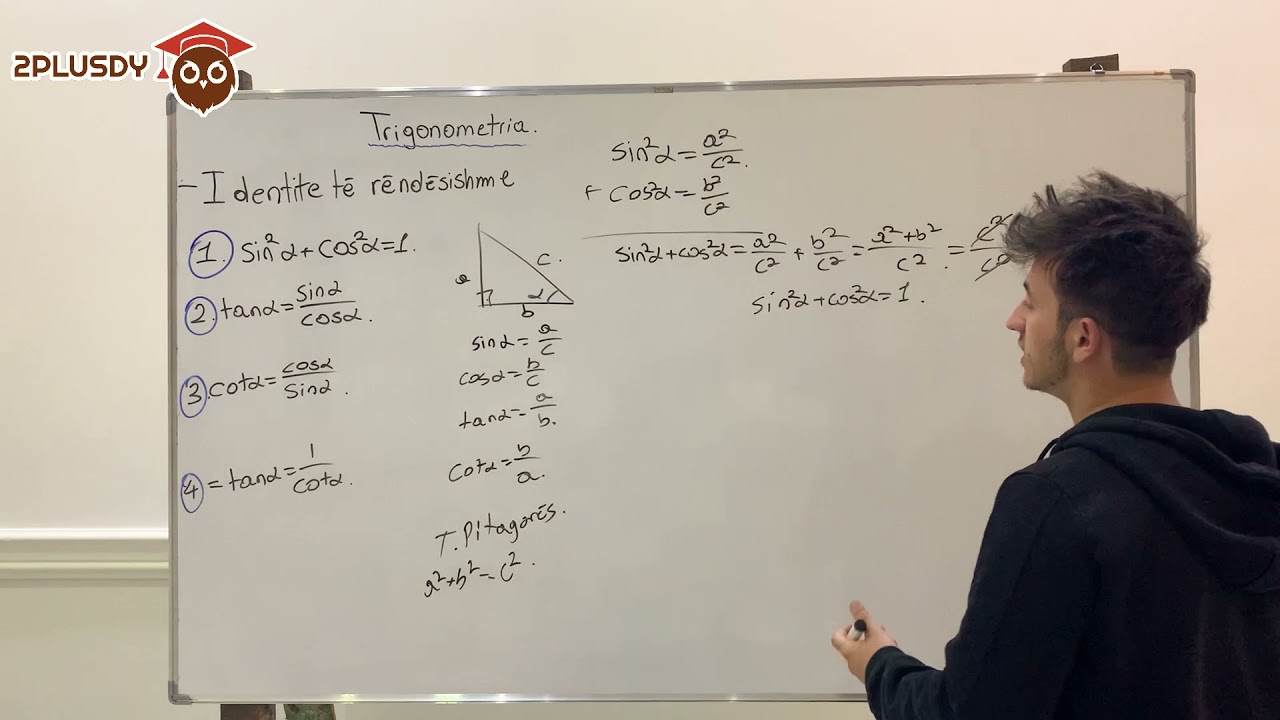 2PLUSDY
Trigonometria.
- Identite të rëndësishme
1. sin²α + cos²α = 1.
2 tanα = sinα/cosα.
3. cotα = cosα/sinα.
4 = tanα = 1/cotα.
a
c.
α
b
sinα = a/c
cosα = b/c
tanα = a/b.
cotα = b/a.
T. Pitagorës.
a² + b² = c².
sin²α = a²/c².
+ cos²α = b²/c²
sin²α + cos²α = a²/c² + b²/c² = a² + b²/c². = c²/c²
sin²α + cos²α = 1.